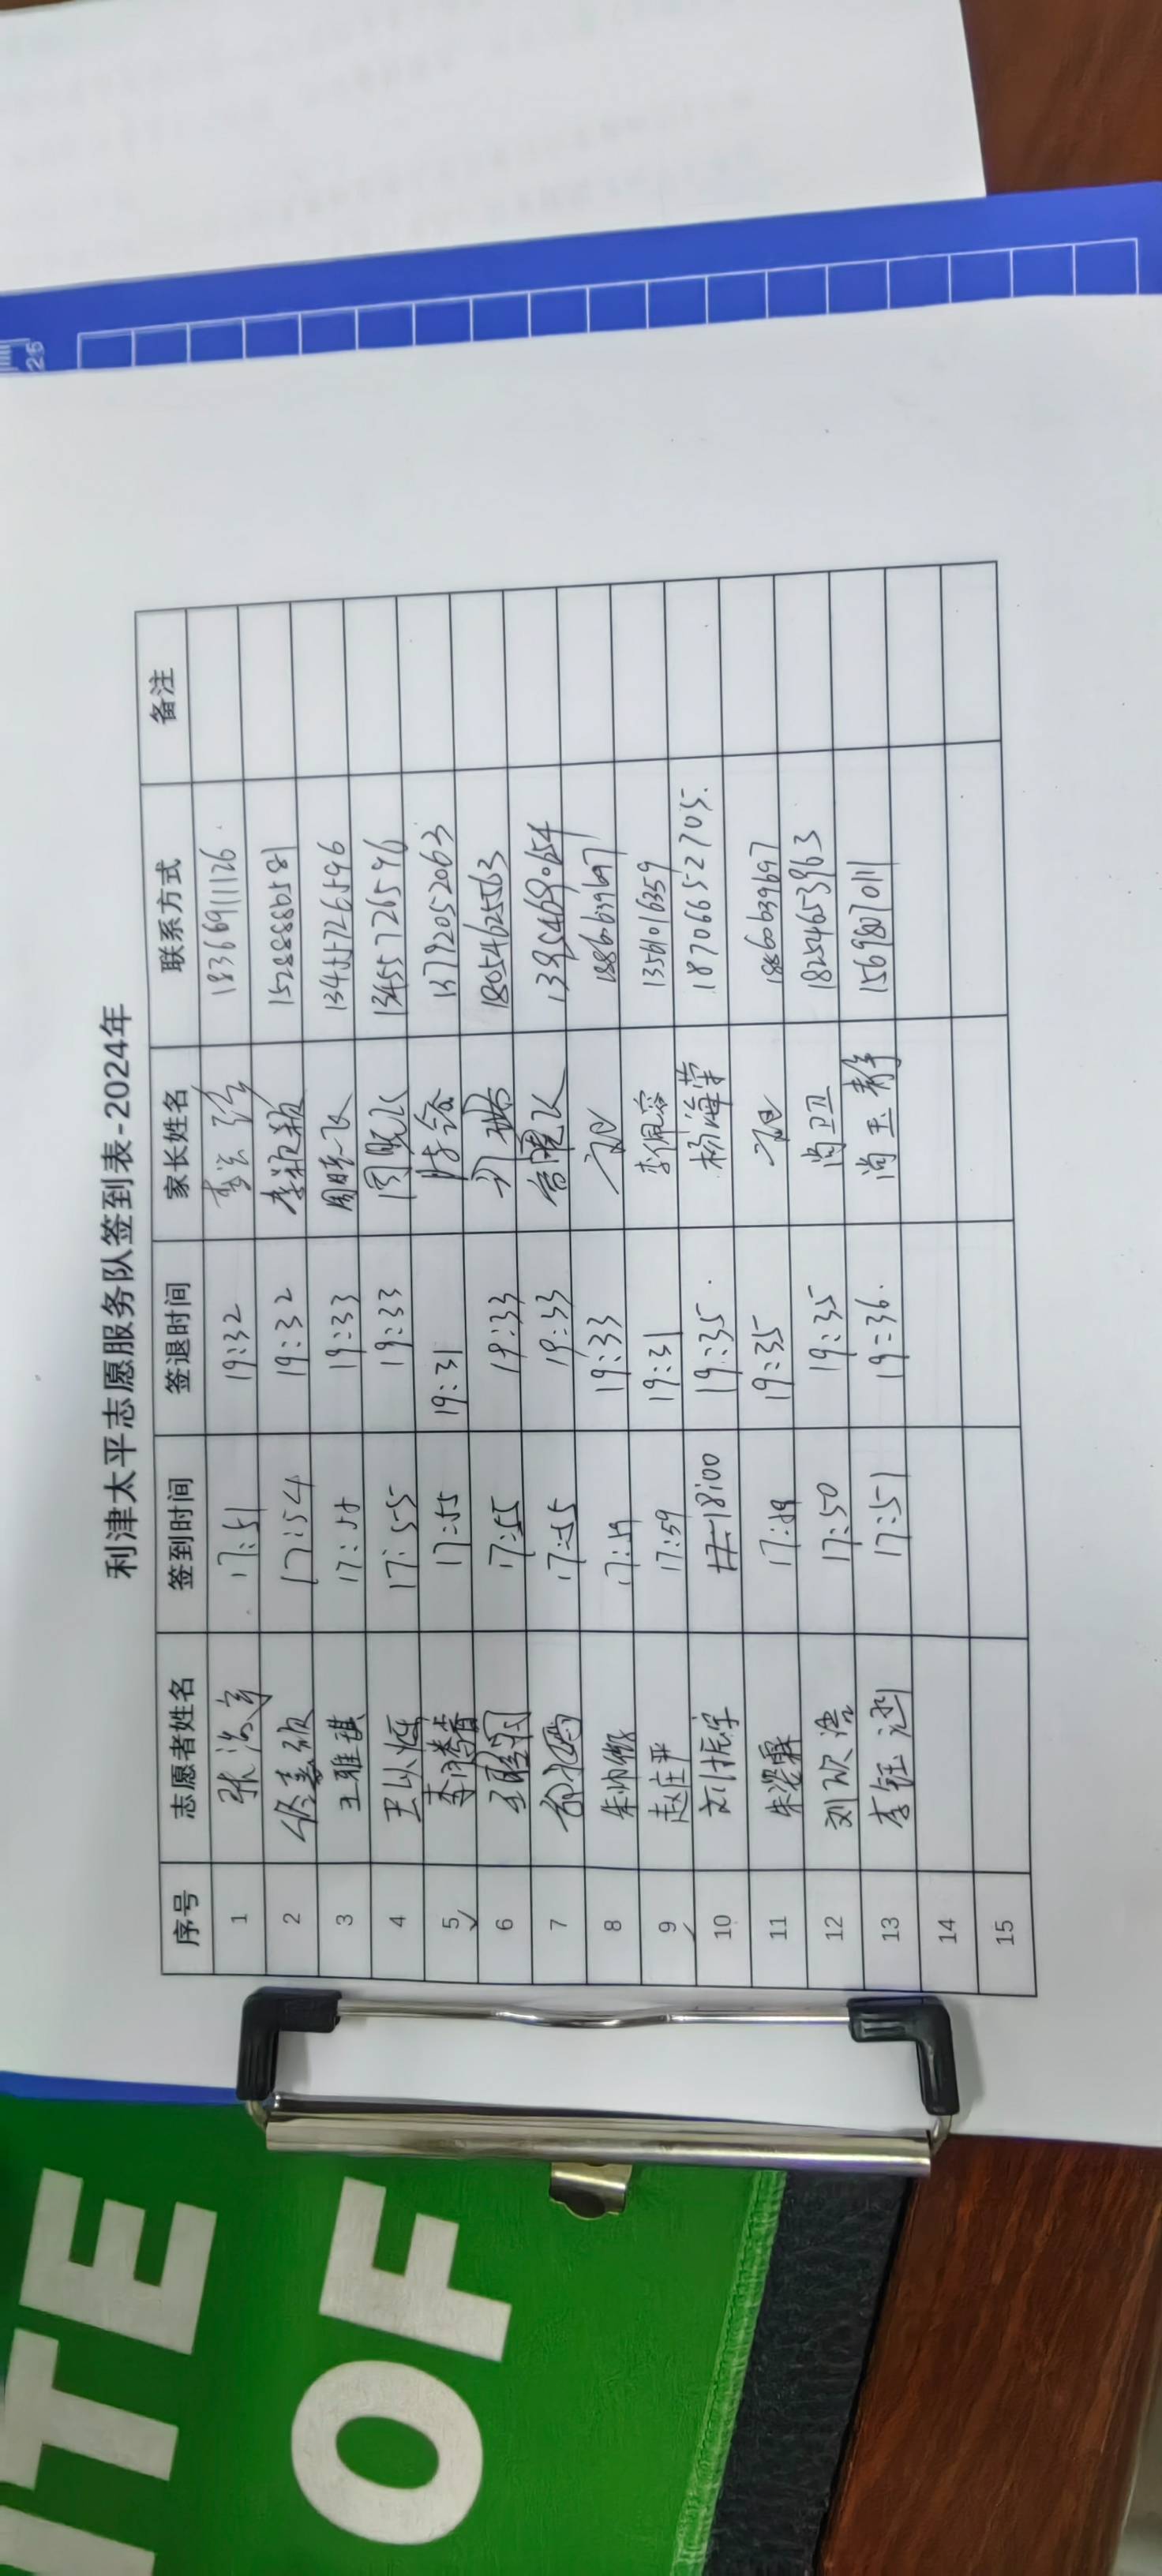 利津太平志愿服务队签到表-2024年
序号 志愿者姓名 签到时间 签退时间 家长姓名 联系方式 备注
1 张 17:51 19:32 李 18366911126
2 17:54 19:32 李 15288886581
3 王雅琪 17:55 19:33 周晓飞 13455726596
4 王以恒 17:55 19:33 周晓飞 13455726596
5 李 17:55 19:31 陈 13792052063
6 王 17:55 19:33 18054625563
7 17:55 19:33
8 朱 17:59 19:33 18660639697
9 赵庄严 17:59 19:31 李佩容 13561016359
10 刘振宇 18:00 19:35 杨海荣 18706652705
11 朱 17:59 19:35 18660639697
12 刘欣浩 17:50 19:35 尚卫卫 18254653963
13 李钰 17:51 19:36 尚玉静 1569807011
14
15
25
OF